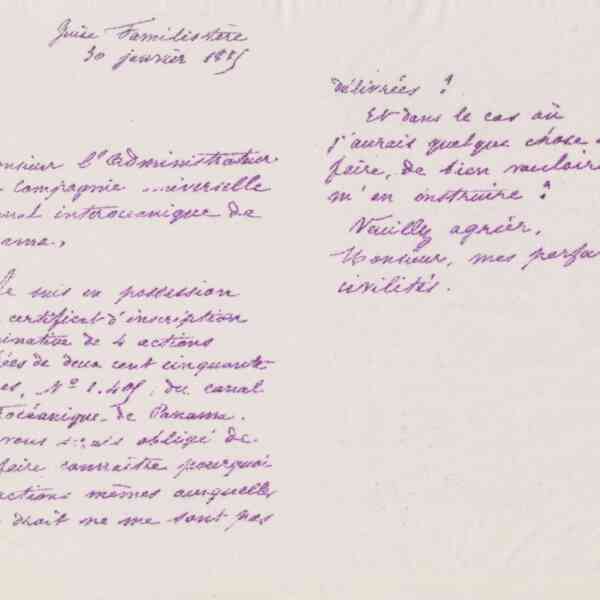 Guise Familistère
30 janvier 1885
onsieur l'administrateur
compagnie universelle
anal interocéanique de
nama,
Je suis en possession
certificat d'inscription
minative de 4 actions
ées de deux cent cinquante
es, Nº 2.495, du canal
rocéanique de Panama.
vous serais obligé de
faire connaître pourquoi
actions mêmes auxquelles
droit ne me sont pas
délivrées ?
Et dans le cas où
j'aurais quelque chose à
faire, de bien vouloir
m'en instruire ?
Veuillez agréer,
Monsieur, mes parfa
civilités.